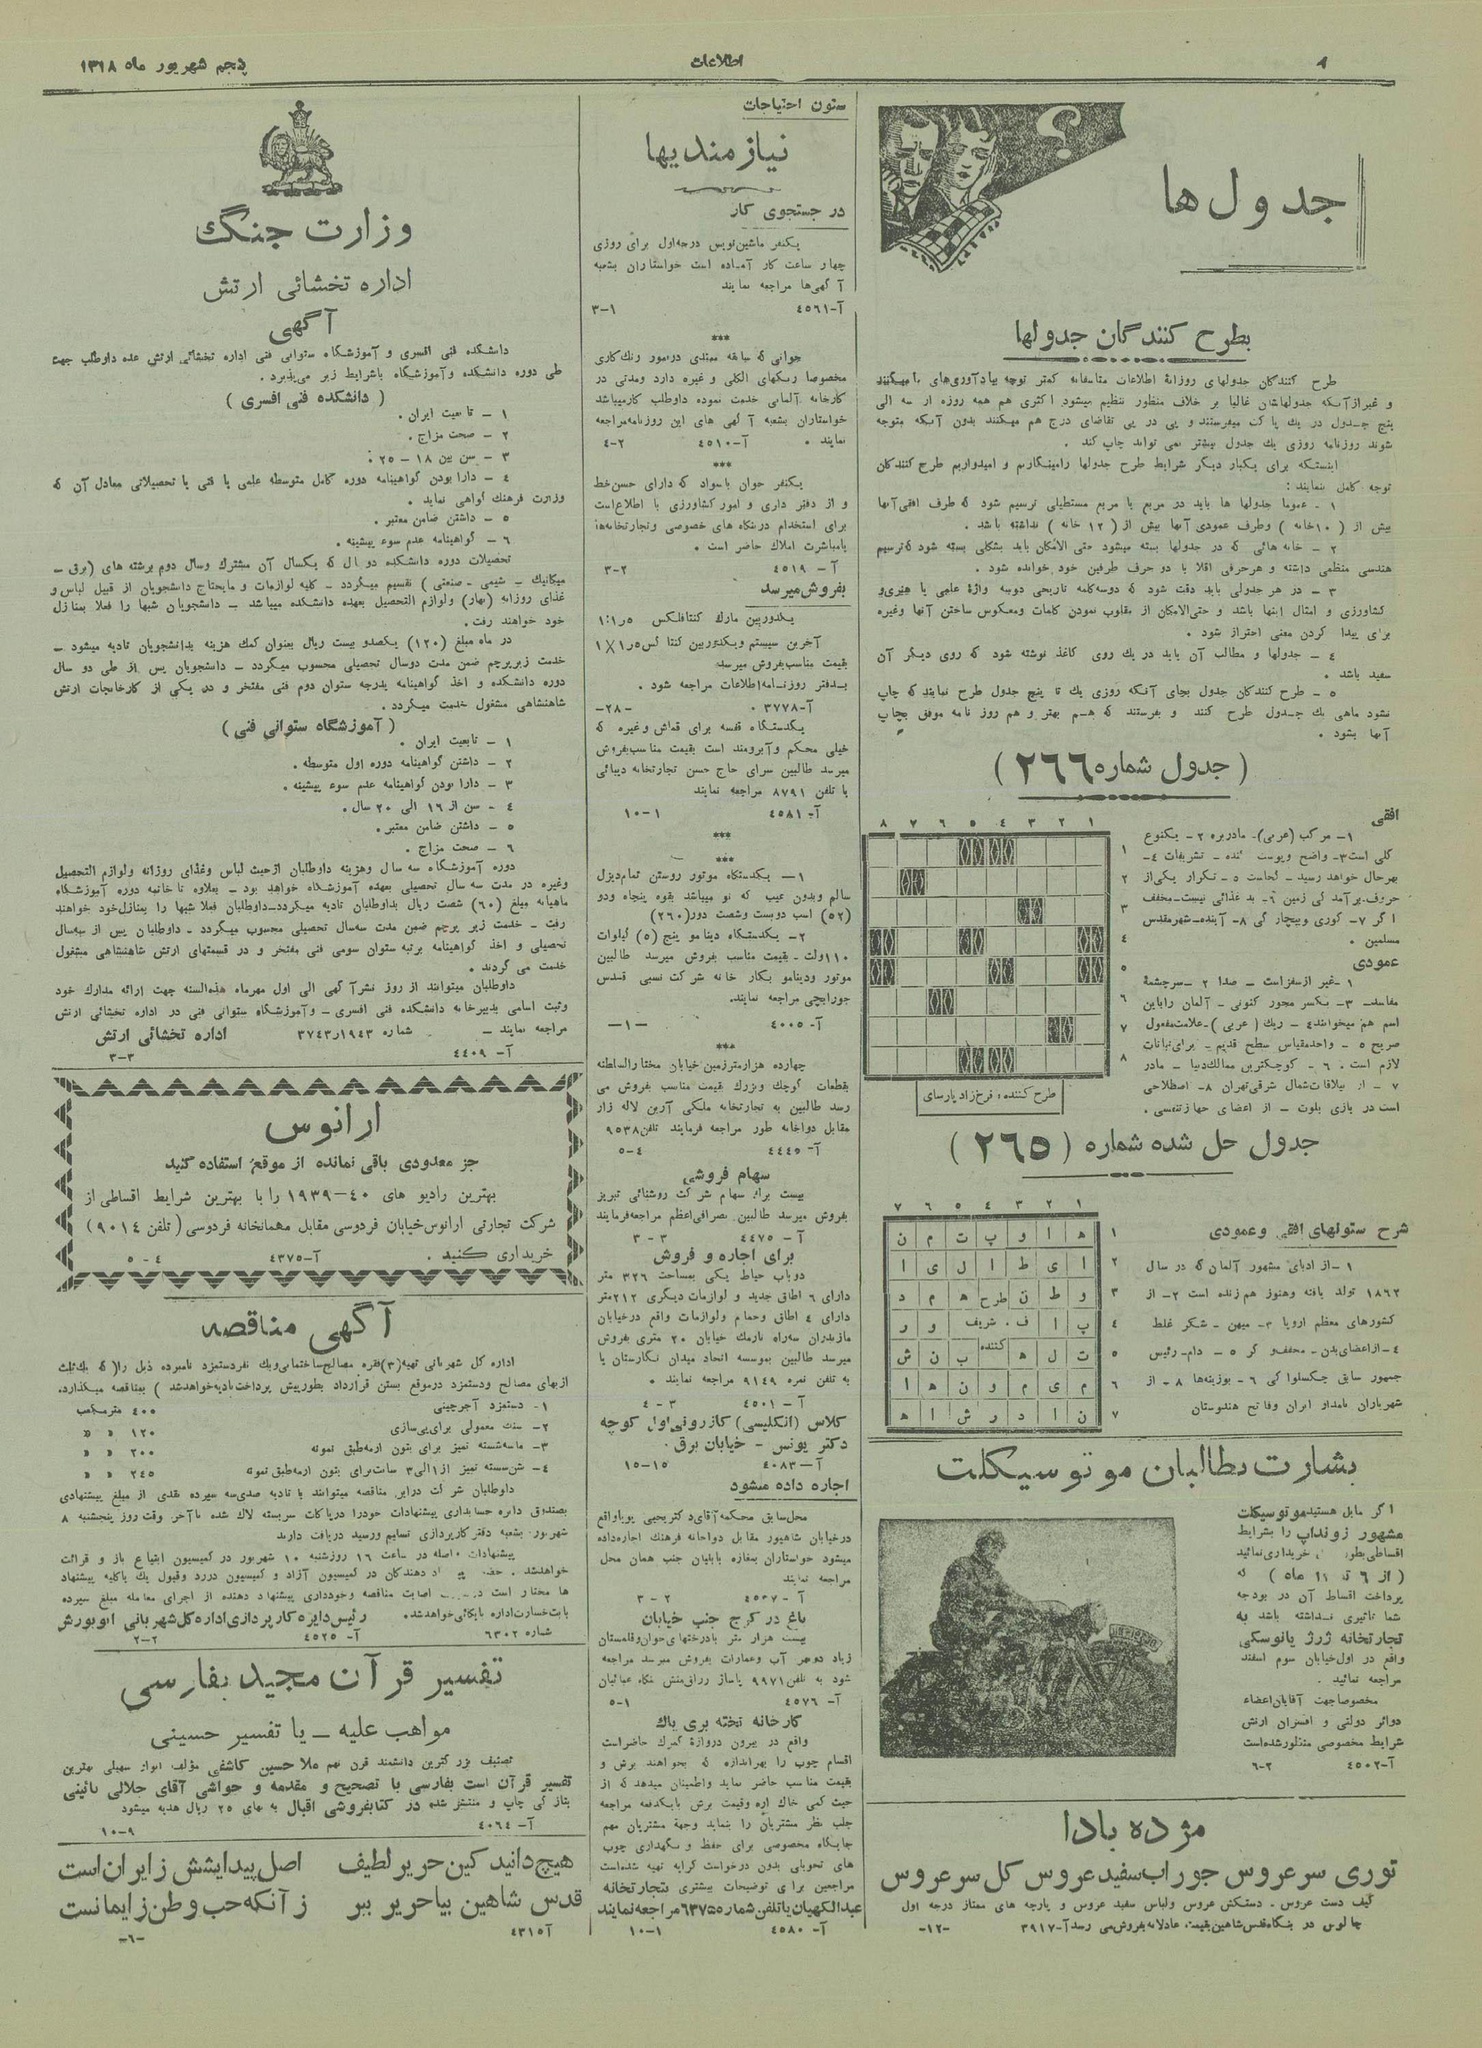 ۸
اطلاعات
پنجم شهریور ماه ۱۳۱۸
جدول ها
بطرح کنندگان جدولها
طرح کنندگان جدولهای روزنامهٔ اطلاعات متاسفانه کمتر توجه بیادآوری‌های ما میکنند
و غیر از آنکه جدولهاشان غالبا بر خلاف منظور تنظیم میشود اکثری هم همه روزه از سه الی
پنج جدول در یك پاکت میفرستند و پی در پی تقاضای درج هم میکنند بدون آنکه متوجه
شوند روزنامه روزی یك جدول بیشتر نمی تواند چاپ کند .
اینستکه برای یکبار دیگر شرایط طرح جدولها را مینگاریم و امیدواریم طرح کنندگان
توجه کامل بنمایند :
۱ - عموما جدولها ها باید در مربع یا مربع مستطیلی ترسیم شود که طرف افقی آنها
بیش از ( ۱۰ خانه ) وطرف عمودی آنها بیش از ( ۱۲ خانه ) نداشته باشد .
۲ - خانه هائی که در جدولها بسته میشود حتی الامکان باید بشکلی بسته شود که ترسیم
هندسی منظمی داشته و هر حرفی اقلا با دو حرف طرفین خود خوانده شود .
۳ - در هر جدولی باید دقت شود که دوسه کلمه تاریخی دوسه واژهٔ علمی یا هنری و
کشاورزی و امثال اینها باشد و حتی‌الامکان از مقلوب نمودن کلمات ومعکوس ساختن آنها وغیره
برای پیدا کردن معنی احتراز شود .
٤ - جدولها و مطالب آن باید در یك روی کاغذ نوشته شود که روی دیگر آن
سفید باشد .
۵ - طرح کنندگان جدول بجای آنکه روزی یك تا پنج جدول طرح نمایند که چاپ
نشود ماهی یك جدول طرح کنند و بفرستند که هم بهتر و هم روز نامه موفق بچاپ
آنها بشود .
( جدول شماره ۲٦٦ )
افقی
۱- مرکب (عربی)- مادربره ۲- یکنوع
گلی است ۳- واضح وپوست کنده - تشریفات ٤-
بهرحال خواهد رسید - کجاست ۵ - تکرار یکی از
حروف-برآمدگی زمین ٦- بد غذائی نیست-مخفف
اگر ۷- کوری وبیچارگی ۸- آینده-شهرمقدس
مسلمین .
عمودی
۱ - غیر ازسفر است - صدا ۲ - سرچشمهٔ
مفاسد- ۳- یکسر محور کنونی - آلمان را باین
اسم هم میخوانند ٤ - ریك ( عربی )-علامت مفعول
صریح ۵ - واحدمقیاس سطح قدیم - برای نباتات
لازم است . ٦ - کوچکترین ممالك دنیا - مادر
۷ - از ییلاقات شمال شرقی تهران ۸- اصطلاحی
است در بازی بلوت - از اعضای جهاز تنفسی .
۱ ۲ ۳ ٤ ۵ ٦ ۷ ۸
۱
۲
۳
٤
۵
٦
۷
۸
طرح کننده ؛ فرخ زاد پارسای
جدول حل شده شماره ( ۲٦۵ )
شرح ستونهای افقی وعمودی
۱ - از ادبای مشهور آلمان که در سال
۱۸٦۲ تولد یافته وهنوز هم زنده است ۲- از
کشورهای معظم اروپا ۳- میهن - شکر غلط
٤-ازاعضای بدن- مخفف و گر ۵ - دام-رئیس
جمهور سابق چکسلواکی ٦ - بوزینه‌ها ۸ - از
شهریاران نامدار ایران وفاتح هندوستان
۱ ۲ ۳ ٤ ۵ ٦ ۷
۱ ه ا و پ ت م ن
۲ ا ی ط ا ل ی ا
۳ و ط ن طرح ه م د
٤ پ ا ف. شریف و ر
۵ ت ل ه کننده ب ن ش
٦ م ی م و ن ه ا
۷ ن ا د ر ش ا ه
بشارت بطالبان موتوسیکلت
اگر مایل هستید موتوسیکلت
مشهور زونداپ را بشرایط
خریداری نمائید
پرداخت اقساط آن در بودجه
شما تاثیری نداشته باشد به
تجارتخانه ژرژ یانوسکی
واقع در اول خیابان سوم اسفند
مراجعه نمائید .
مخصوصا جهت آقایان اعضاء
دوائر دولتی و افسران ارتش
شرایط مخصوصی منظور شده است
آ-٤۵۰۲ ۲-٦
مژده بادا
توری سر عروس جوراب سفید عروس گل سر عروس
کیف دست عروس . دستکش عروس ولباس سفید عروس و پارچه های ممتاز درجه اول
چالوس در بنگاه قدس شاهین بقیمت عادلانه بفروش می رسد آ-۳۹۱۷ -۱۲-
ستون احتیاجات
نیازمندیها
در جستجوی کار
یکنفر ماشین نویس درجه اول برای روزی
چهار ساعت کار آماده است خواستاران بشعبه
آگهی‌ها مراجعه نمایند
آ-٤۵٦۱ ۱-۳
***
جوانی که سابقه ممتدی در امور رنك کاری
مخصوصا رنگهای الکلی و غیره دارد ومدتی در
کارخانه آلمانی خدمت نموده داوطلب کار میباشد
خواستاران بشعبه آگهی های این روزنامه مراجعه
نمایند . آ-٤۵۱۰ ۲-٤
***
یکنفر جوان باسواد که دارای حسن خط
و از دفتر داری و امور کشاورزی با اطلاع است
برای استخدام در بنگاه های خصوصی وتجارتخانه‌ها
یا مباشرت املاك حاضر است .
آ - ٤۵۱۹ ۲-۳
بفروش میرسد
یکدوربین مارك کنتافلکس ۱:۱ر۵
آخرین سیستم ویکدوربین کنتاکس
بقیمت مناسب بفروش میرسد
بدفتر روزنامه اطلاعات مراجعه شود .
آ-۳۷۷۸ -۲۸-
یکدستگاه قفسه برای قماش وغیره که
خیلی محکم وآبرومند است بقیمت مناسب بفروش
میرسد طالبین سرای حاج حسن تجارتخانه دیبائی
با تلفن ۸۷۹۱ مراجعه نمایند
آ-٤۵۸۱ ۱-۱۰
***
***
۱- یکدستگاه موتور روستن تمام دیزل
سالم وبدون عیب که نو میباشد بقوه پنجاه ودو
(۵۲) اسب دویست وشصت دور(۲٦۰)
۲- یکدستگاه دینامو پنج (۵) کیلوات
۱۱۰ولت - بقیمت مناسب بفروش میرسد طالبین
موتور ودینامو بکار خانه شرکت نسبی قدس
جورابچی مراجعه نمایند.
آ- ٤۰۰۵ -۱-
***
چهارده هزارمترزمین خیابان مختارالسلطنه
بقطعات کوچك وبزرك بقیمت مناسب بفروش می
رسد طالبین به تجارتخانه ملکی آرین لاله زار
مقابل دواخانه طور مراجعه فرمایند تلفن ۹۵۳۸
آ- ٤٤٤۵ ٤-۵
سهام فروشی
بیست برك سهام شرکت روشنائی تبریز
بفروش میرسد طالبین بصرافی اعظم مراجعه فرمایند
آ - ٤٤۷۵ ۳ - ۳
برای اجاره و فروش
دوباب حیاط یکی بمساحت ۳۲٦ متر
دارای ٦ اطاق جدید و لوازمات دیگری ۲۱۲متر
دارای ٤ اطاق وحمام ولوازمات واقع درخیابان
مازندران سه‌راه نارمك خیابان ۲۰ متری بفروش
میرسد طالبین بموسسه اتحاد میدان نگارستان یا
به تلفن نمره ۹۱٤۹ مراجعه نمایند .
آ - ٤۵۰۱ ۳ - ٤
کلاس (انگلیسی) کازرونی اول کوچه
دکتر یونس - خیابان برق .
آ-٤۰۸۳ ۱۵-۱۵
اجاره داده میشود
محل سابق محکمه آقای دکتریحیی پویا واقع
درخیابان شاهپور مقابل دواخانه فرهنك اجاره داده
میشود خواستاران بمغازه بابایان جنب همان محل
مراجعه نمایند
۲ - ۳
باغ در کرج جنب خیابان
بیست هزار متر بادرختهای جوان وقلمستان
زیاد دوحجر آب وعمارات بفروش میرسد مراجعه
شود به تلفن ۹۹۷۱
آ- ٤۵۷٦ ۱-۵
کارخانه تخته بری پاك
واقع در بیرون دروازهٔ گمرك حاضراست
اقسام چوب را بهراندازه که بخواهند برش و
بقیمت مناسب حاضر نماید واطمینان میدهد که از
حیث کمی خاك اره وقیمت برش بایکدفعه مراجعه
جلب نظر مشتریان را بنماید وجهة مشتریان مهم
جایگاه مخصوصی برای حفظ و نگهداری چوب
های تحویلی بدون درخواست کرایه تهیه شده است
مراجعین برای توضیحات بیشتری بتجارتخانه
عبدالکهیان باتلفن شماره ٦۳۷۵۵مراجعه نمایند
آ- ٤۵۸۰ ۱-۱۰
وزارت جنگ
اداره تخشائی ارتش
آگهی
دانشکده فنی افسری و آموزشگاه ستوانی فنی اداره تخشائی ارتش عده داوطلب جهت
طی دوره دانشکده وآموزشگاه باشرایط زیر می‌پذیرد .
( دانشکده فنی افسری )
۱ - تابعیت ایران .
۲ - صحت مزاج .
۳ - سن بین ۱۸ - ۲۵ .
٤ - دارا بودن گواهینامه دوره کامل متوسطه علمی یا فنی یا تحصیلاتی معادل آن که
وزارت فرهنك گواهی نماید .
۵ - داشتن ضامن معتبر .
٦ - گواهینامه عدم سوء پیشینه .
تحصیلات دوره دانشکده دوسال که یکسال آن مشترك وسال دوم برشته های (برق -
میکانیك - شیمی - صنعتی ) تقسیم میگردد - کلیه لوازمات و مایحتاج دانشجویان از قبیل لباس و
غذای روزانه (نهار) ولوازم التحصیل بعهده دانشکده میباشد - دانشجویان شبها را فعلا بمنازل
خود خواهند رفت .
در ماه مبلغ (۱۲۰) یکصدو بیست ریال بعنوان کمك هزینه بدانشجویان تادیه میشود -
خدمت زیرپرچم ضمن مدت دوسال تحصیلی محسوب میگردد - دانشجویان پس از طی دو سال
دوره دانشکده و اخذ گواهینامه بدرجه ستوان دوم فنی مفتخر و در یکی از کارخانجات ارتش
شاهنشاهی مشغول خدمت میگردد .
( آموزشگاه ستوانی فنی )
۱ - تابعیت ایران .
۲ - داشتن گواهینامه دوره اول متوسطه .
۳ - دارا بودن گواهینامه عدم سوء پیشینه .
٤ - سن از ۱٦ الی ۲۰ سال .
۵ - داشتن ضامن معتبر .
٦ - صحت مزاج .
دوره آموزشگاه سه سال وهزینه داوطلبان ازحیث لباس وغذای روزانه ولوازم التحصیل
وغیره در مدت سه سال تحصیلی بعهده آموزشگاه خواهد بود - بعلاوه تا خاتمه دوره آموزشگاه
ماهیانه مبلغ (٦۰) شصت ریال بداوطلبان تادیه میگردد-داوطلبان فعلا شبها را بمنازل خود خواهند
رفت - خدمت زیر پرچم ضمن مدت سه‌سال تحصیلی محسوب میگردد - داوطلبان پس از سه‌سال
تحصیلی و اخذ گواهینامه برتبه ستوان سومی فنی مفتخر و در قسمتهای ارتش شاهنشاهی مشغول
خدمت می گردند .
داوطلبان میتوانند از روز نشر آگهی الی اول مهرماه هذه‌السنه جهت ارائه مدارك خود
وثبت اسامی بدبیرخانه دانشکده فنی افسری - وآموزشگاه ستوانی فنی در اداره تخشائی ارتش
مراجعه نمایند - شماره ۱۹٤۳ر۳۷٤۳ اداره تخشائی ارتش
آ- ٤٤۰۹ ۳-۳
ارانوس
جز معدودی باقی نمانده از موقع استفاده کنید
بهترین رادیو های ٤۰-۱۹۳۹ را با بهترین شرایط اقساطی از
شرکت تجارتی ارانوس خیابان فردوسی مقابل مهمانخانه فردوسی ( تلفن ۹۰۱٤ )
خریداری کنید . آ-٤۳۷۵ ٤ - ۵
آگهی مناقصه
اداره کل شهربانی تهیه (۳) فقره مصالح ساختمانی ویك نفر دستمزد نامبرده ذیل را( که یك ثلث
ازبهای مصالح ودستمزد درموقع بستن قرارداد بطور پیش پرداخت تادیه خواهد شد ) بمناقصه میگذارد.
۱- دستمزد آجرچینی ٤۰۰ مترمکعب
۲- سنك معمولی برای پی‌سازی ۱۲۰ « «
۳- ماسه شسته تمیز برای بتون ارمه طبق نمونه ۲۰۰ « «
٤- شن شسته تمیز از ۱الی ۳ سانت برای بتون ارمه طبق نمونه ۲٤۵ « «
داوطلبان شرکت دراین مناقصه میتوانند با تادیه صدی سه سپرده نقدی از مبلغ پیشنهادی
بصندوق دایره حسابداری پیشنهادات خودرا درپاکات سربسته لاك شده تاآخر وقت روز پنجشنبه ۸
شهریور بشعبه دفتر کارپردازی تسلیم ورسید دریافت دارند
پیشنهادات واصله در ساعت ۱٦ روزشنبه ۱۰ شهریور در کمیسیون ابتیاع باز و قرائت
خواهد شد . دهندگان در کمیسیون آزاد و کمیسیون دررد وقبول یك یا کلیه پیشنهاد
ها مختار است اصابت مناقصه وخودداری پیشنهاد دهنده از اجرای معامله مبلغ سپرده
بابت خسارت اداره بایگانی خواهد شد. رئیس دایره کارپردازی اداره کل شهربانی ابوبورش
شماره ٦۳۰۲ آ- ٤۵۲۵ ۲-۲
تفسیر قرآن مجید بفارسی
مواهب علیه - یا تفسیر حسینی
تصنیف بزرگترین دانشمند قرن نهم ملا حسین کاشفی مؤلف انوار سهیلی بهترین
تفسیر قرآن است بفارسی با تصحیح و مقدمه و حواشی آقای جلالی نائینی
بتازگی چاپ و منتشر شده در کتابفروشی اقبال به بهای ۲۵ ریال هدیه میشود
آ- ٤۰٦٤ ۹-۱۰
هیچ دانید کین حریر لطیف اصل پیدایشش ز ایران است
قدس شاهین بیا حریر ببر ز آنکه حب وطن ز ایمانست
آ٤۳۱۵
-٦-